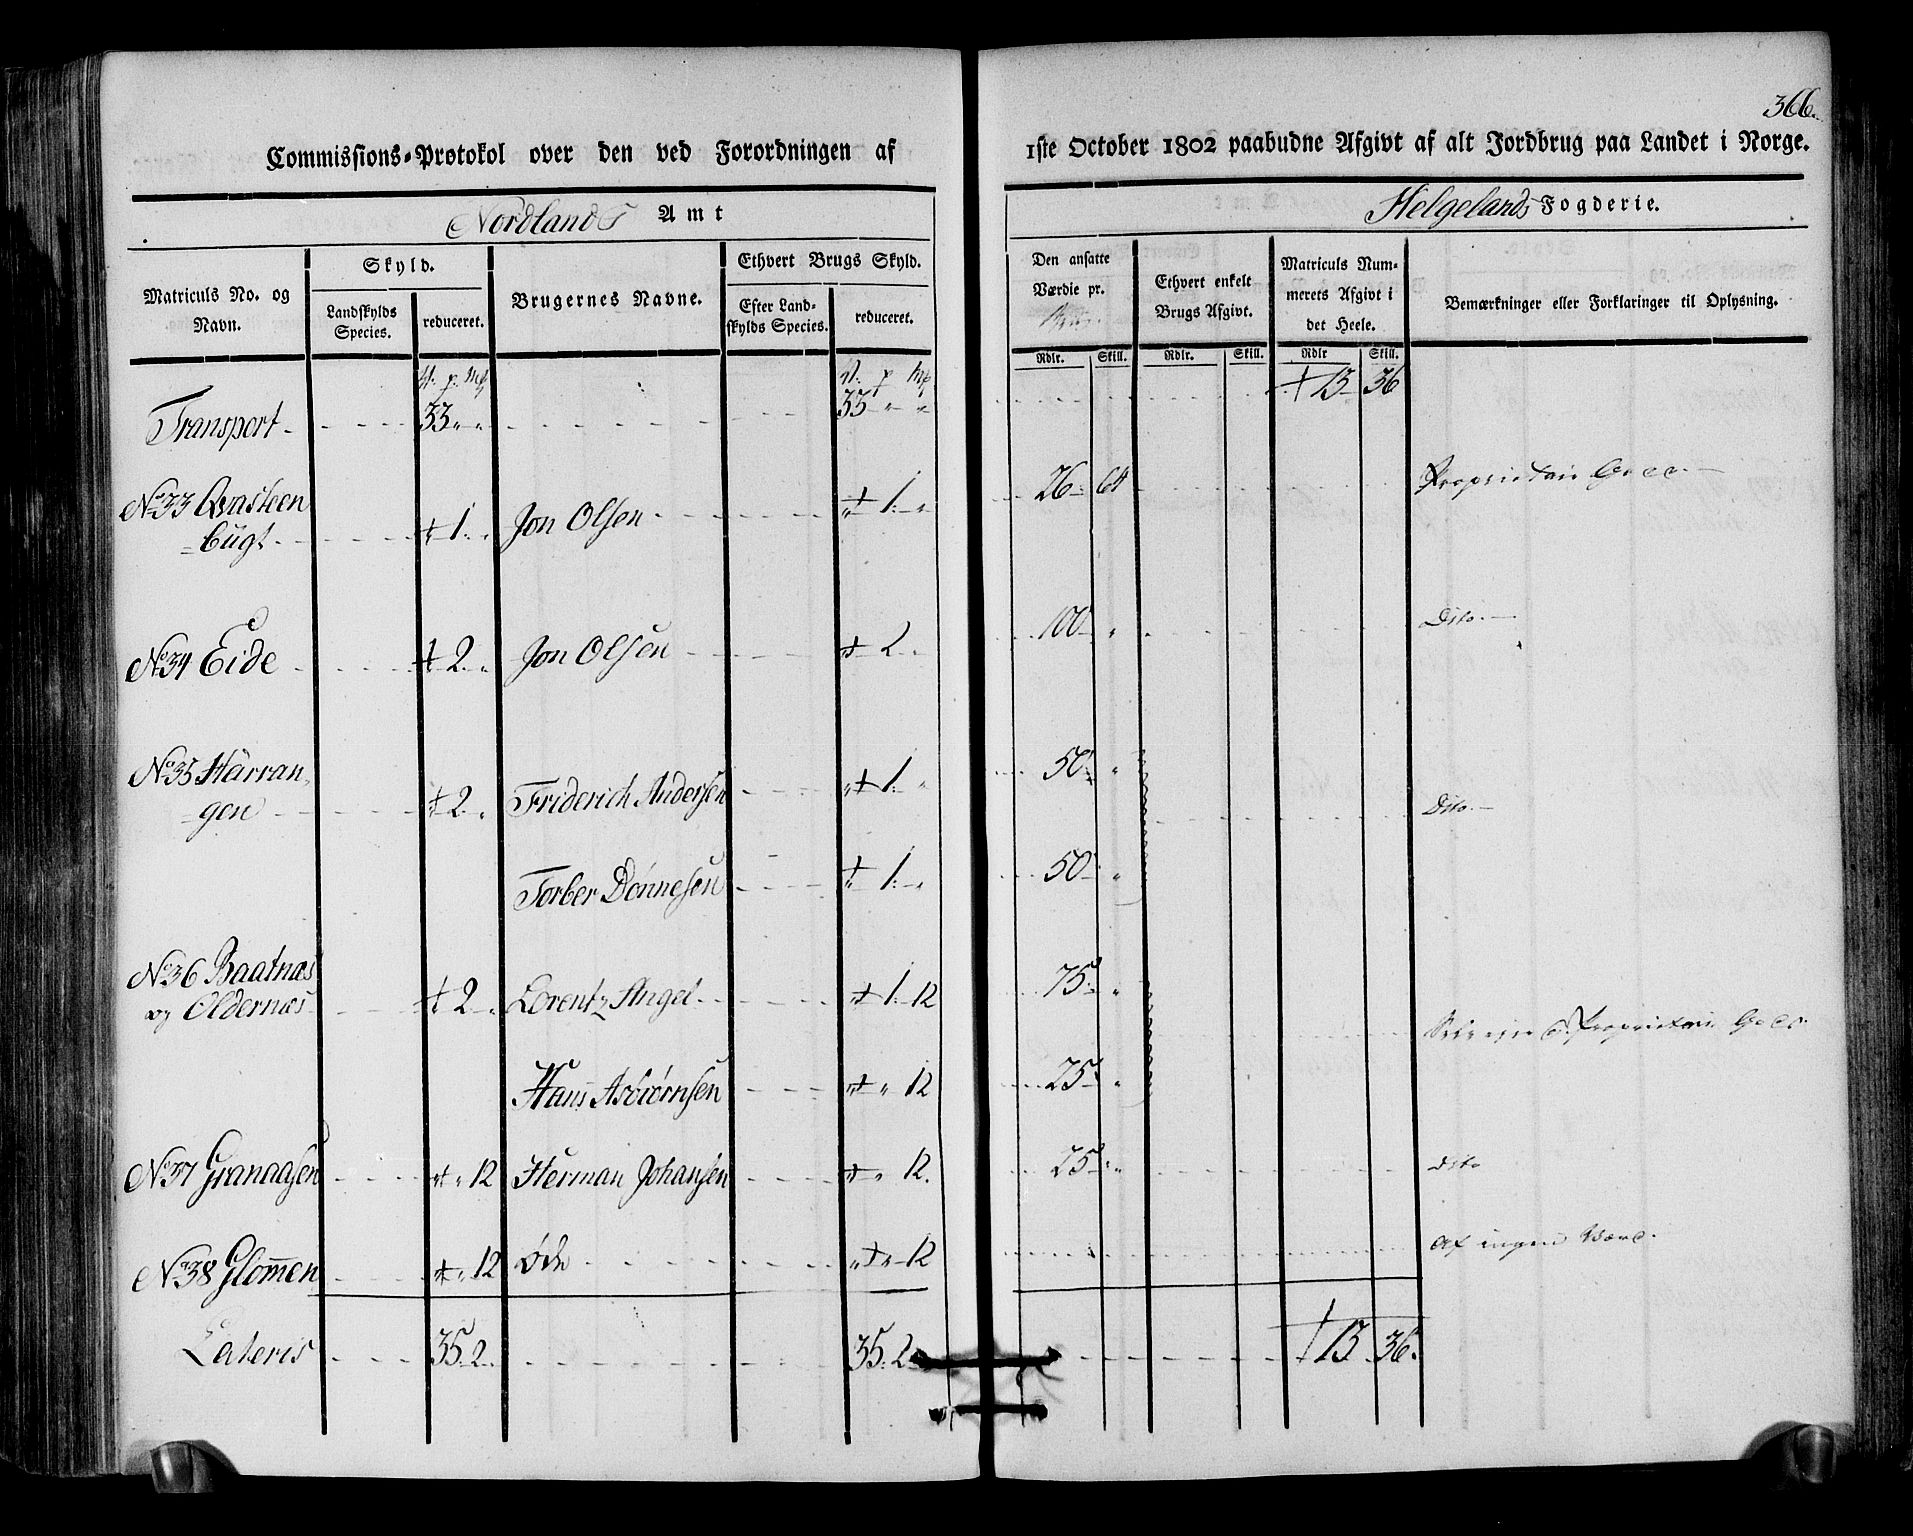 366.
Commissions-Protokol over den ved Forordningen af 1ste October 1802 paabudne Afgivt af alt Jordbrug paa Landet i Norge.
Nordlands Amt Helgelands Fogderie.
Matriculs No. og Navn.
Skyld.
Landskylds Species.
reduceret.
Brugernes Navne.
Ethvert Brugs Skyld.
Efter Landskylds Species.
reduceret.
Den ansatte Værdie pr.
Rdlr. Skill.
Ethvert enkelt Brugs Afgivt.
Rdlr. Skill.
Matriculs Nummerets Afgivt i det Heele.
Rdlr Skill.
Bemærkninger eller Forklaringer til Oplysning.
V: p: Mk V: p Mk
Transport 33 " " 33 " " 13 36
No 33 Qvasteen
bugt 1 " Jon Olsen 1 " 26 64 Proprietair Coee.
No 34 Eide 2 " Jon Olsen 2 " 100 " Dito.
No 35 Harran
gen 2 " Friderich Andersen 1 " 50 " Dito.
Torber Dønnesen 1 " 50 "
No 36 Baatnæs
og Oldernæs 2 " Lorentz Angel 1 12 75 " Selveier Proprietair
Hans Asbiørnsen " 12 25 "
No 37 Granaasen " 12 Herman Johansen " 12. 25 " dito
No 38 Glommen " 12 Øde " 12 Af ingen Værd.
Lateris 35. 2 35. 2 13 36.